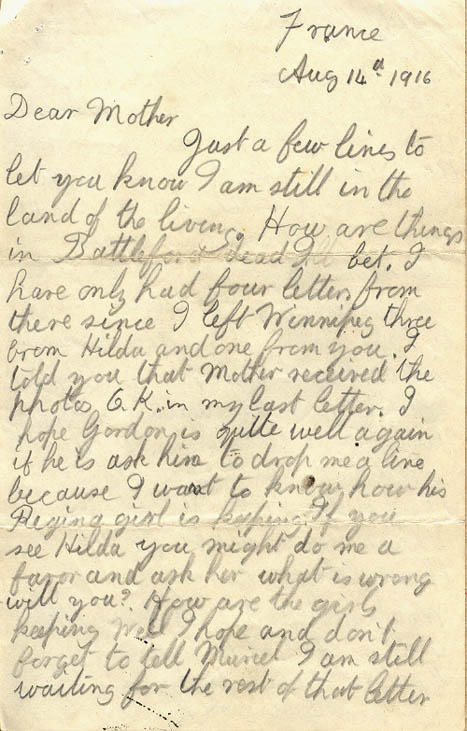 France
Aug 14th 1916
Dear Mother
Just a few lines to
let you know I am still in the
land of the living. How are things
in Battleford dead I'll bet. I
have only had four letters from
there since I left Winnipeg three
from Hilda and one from you. I
told you that Mother received the
photos O.K. in my last letter. I
hope Gordon is quite well again
if he is ask him to drop me a line
because I want to know how his
Regina girl is keeping. If you
see Hilda you might do me a
favor and ask her what is wrong
will you? How are the girls
keeping well I hope and don't
forget to tell Muriel I am still
waiting for the rest of that letter